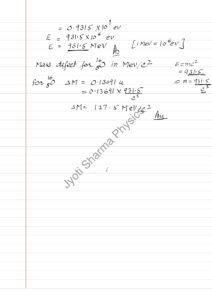 = 0.9315 × 10⁹ ev
E = 931.5 × 10⁶ ev
E = 931.5 MeV Ans [1 MeV = 10⁶ ev]
Mass defect for ¹⁶₈O in MeV/c²
E = mc²
= 931.5
⇒ m = 931.5/c²
For ¹⁶₈O ΔM = 0.13691 u
= 0.13691 × 931.5/c²
ΔM = 127.5 MeV/c²
Ans
Jyoti Sharma Physics